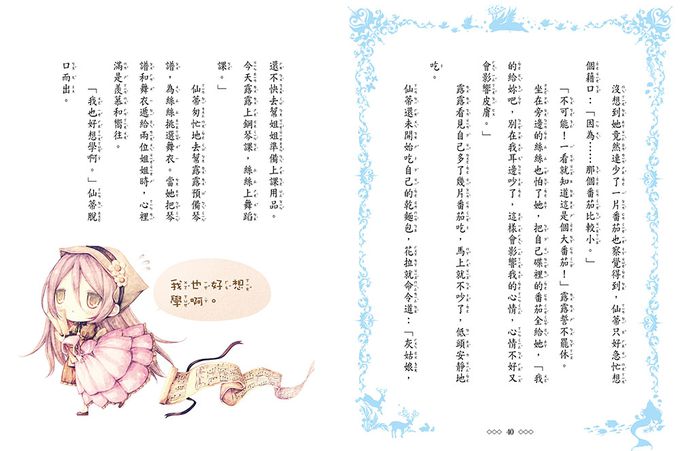 沒想到她竟然連少了一片番茄也察覺得到，仙蒂只好急忙想
個藉口：「因為……那個番茄比較小。」
「不可能！一看就知道這是個大番茄！」露露誓不罷休。
坐在旁邊的絲絲也怕了她，把自己碟裡的番茄全給她，「我
的給妳吧，別在我耳邊吵了，這樣會影響我的心情，心情不好又
會影響皮膚。」
露露看見自己多了幾片番茄吃，馬上就不吵了，低頭安靜地
吃。
仙蒂還未開始吃自己的乾麵包，花拉就命令道：「灰姑娘，
40
還不快去幫姐姐準備上課用品。
今天露露上鋼琴課，絲絲上舞蹈
課。」
仙蒂匆忙地去幫露露預備琴
譜，為絲絲挑選舞衣。當她把琴
譜和舞衣遞給兩位姐姐時，心裡
滿是羨慕和嚮往。
「我也好想學啊。」仙蒂脫
口而出。
我也好想
學啊。